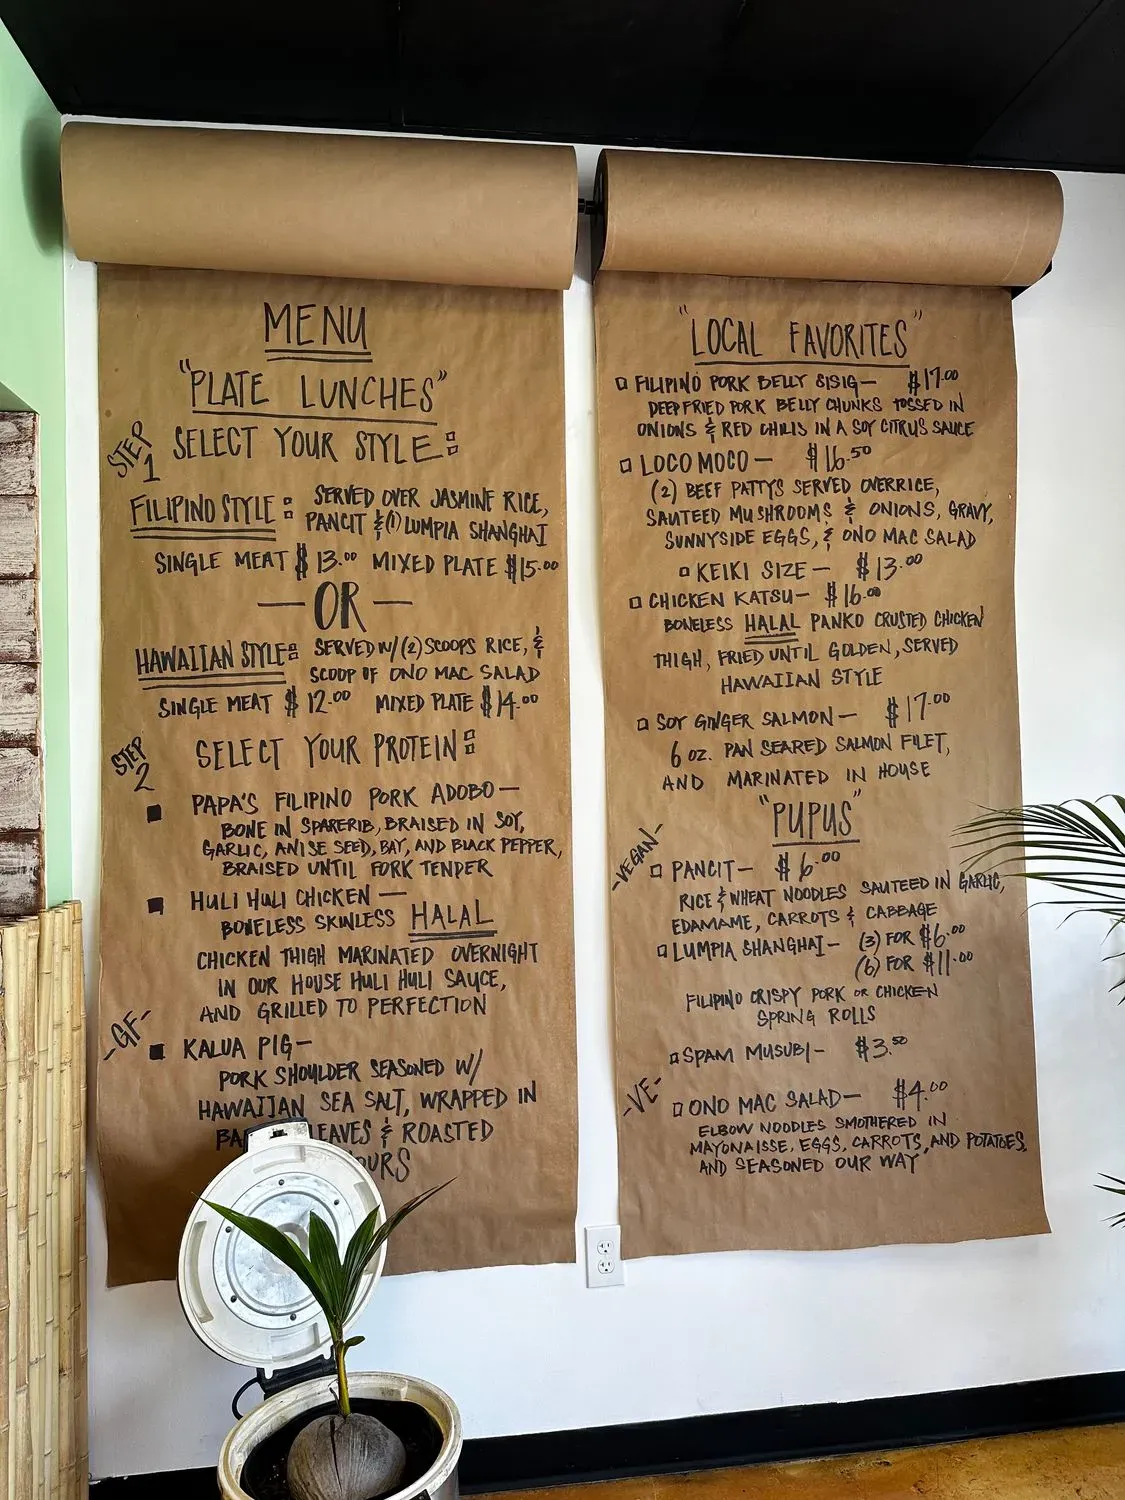 MENU
"PLATE LUNCHES"
STEP 1 SELECT YOUR STYLE:
FILIPINO STYLE: SERVED OVER JASMINE RICE,
PANCIT & (1) LUMPIA SHANGHAI
SINGLE MEAT $13.00 MIXED PLATE $15.00
— OR —
HAWAIIAN STYLE: SERVED W/ (2) SCOOPS RICE, &
SCOOP OF ONO MAC SALAD
SINGLE MEAT $12.00 MIXED PLATE $14.00
STEP 2 SELECT YOUR PROTEIN:
PAPA'S FILIPINO PORK ADOBO—
BONE IN SPARERIB, BRAISED IN SOY,
GARLIC, ANISE SEED, BAY, AND BLACK PEPPER,
BRAISED UNTIL FORK TENDER
HULI HULI CHICKEN —
BONELESS SKINLESS HALAL
CHICKEN THIGH MARINATED OVERNIGHT
IN OUR HOUSE HULI HULI SAUCE,
AND GRILLED TO PERFECTION
-GF- KALUA PIG—
PORK SHOULDER SEASONED W/
HAWAIIAN SEA SALT, WRAPPED IN
LEAVES & ROASTED
"LOCAL FAVORITES"
FILIPINO PORK BELLY SISIG— $17.00
DEEP FRIED PORK BELLY CHUNKS TOSSED IN
ONIONS & RED CHILIS IN A SOY CITRUS SAUCE
LOCO MOCO — $16.50
(2) BEEF PATTYS SERVED OVER RICE,
SAUTEED MUSHROOMS & ONIONS, GRAVY,
SUNNYSIDE EGGS, & ONO MAC SALAD
KEIKI SIZE — $13.00
CHICKEN KATSU— $16.00
BONELESS HALAL PANKO CRUSTED CHICKEN
THIGH, FRIED UNTIL GOLDEN, SERVED
HAWAIIAN STYLE
SOY GINGER SALMON — $17.00
6 OZ. PAN SEARED SALMON FILET,
AND MARINATED IN HOUSE
"PUPUS"
-VEGAN- PANCIT— $6.00
RICE & WHEAT NOODLES SAUTEED IN GARLIC,
EDAMAME, CARROTS & CABBAGE
LUMPIA SHANGHAI— (3) FOR $6.00
(6) FOR $11.00
FILIPINO CRISPY PORK OR CHICKEN
SPRING ROLLS
SPAM MUSUBI— $3.50
-VE- ONO MAC SALAD— $4.00
ELBOW NOODLES SMOTHERED IN
MAYONAISSE, EGGS, CARROTS, AND POTATOES,
AND SEASONED OUR WAY